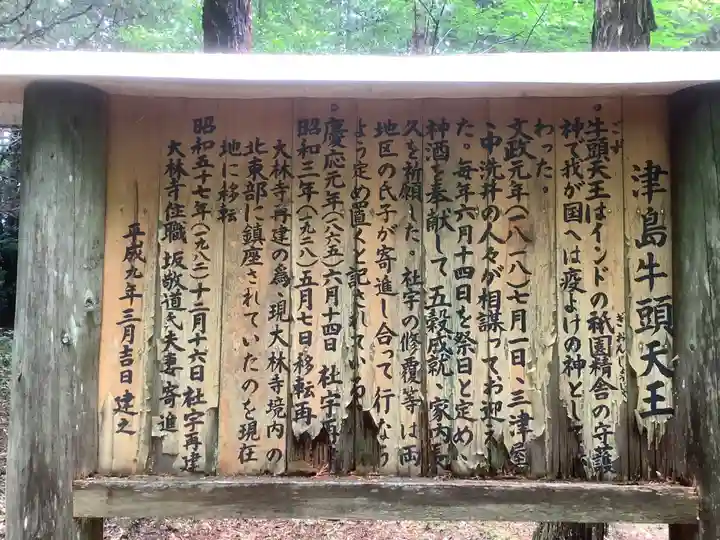 津島牛頭天王
。牛頭天王はインドの祇園精舎の守護
ごず
ぎおんしょうじゃ
神で我が国へは疫よけの神として
わった。
文政元年(一八一八)七月一日、三津屋
、中洗井の人々が相謀ってお迎え
た。毎年六月十四日を祭日と定め、
神酒を奉献して五穀成就、家内
久を祈願した。社宇の修覆等は両
地区の氏子が寄進し合って行なう
よう定め置くと記されている
。慶応元年(一八六五)六月十四日 社宇再
昭和三年(一九二八)五月七日 移転再
大林寺再建の為、現大林寺境内の
北東部に鎮座されていたのを現在
地に移転
昭和五十七年(一九八二)十二月十六日 社宇再建
大林寺住職 坂敬道氏夫妻寄進
平成九年三月吉日 建之